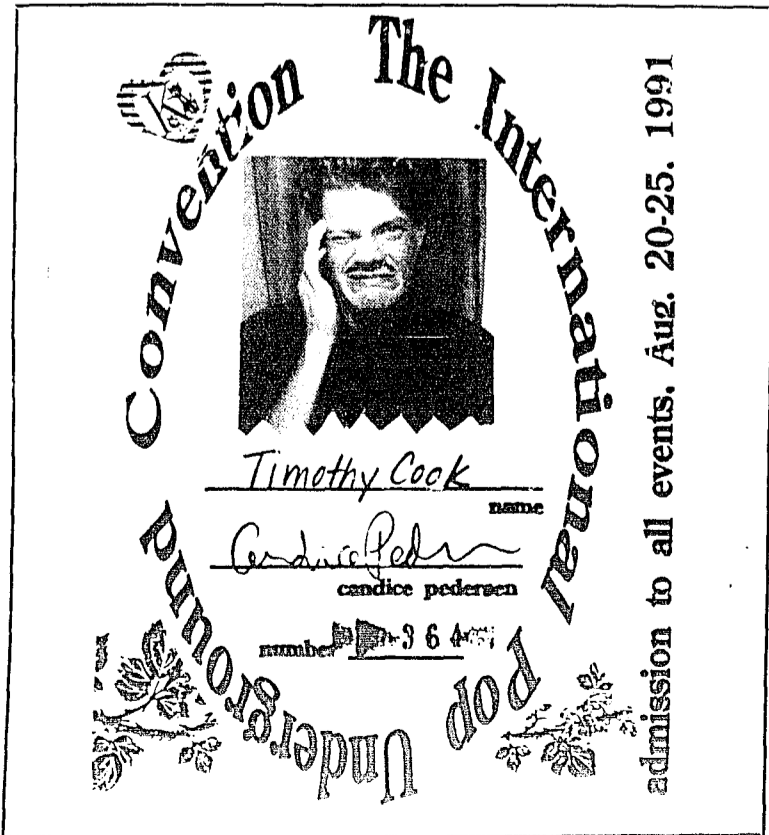 The International Pop Underground Convention
Timothy Cook
name
Candice Peder
candice pedersen
number 364
admission to all events. Aug. 20-25. 1991
K